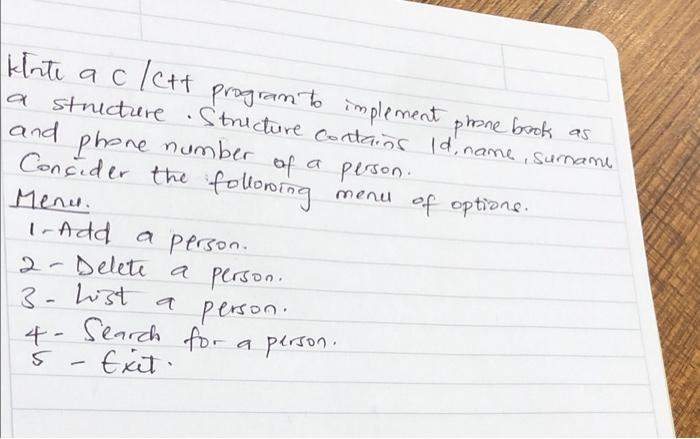 Write a C/C++ program to implement phone book as
a structure. Structure contains Id, name, surname
and phone number of a person.
Consider the following menu of options.
Menu.
1-Add a person.
2- Delete a person.
3- List a person.
4- Search for a person.
5 - Exit.